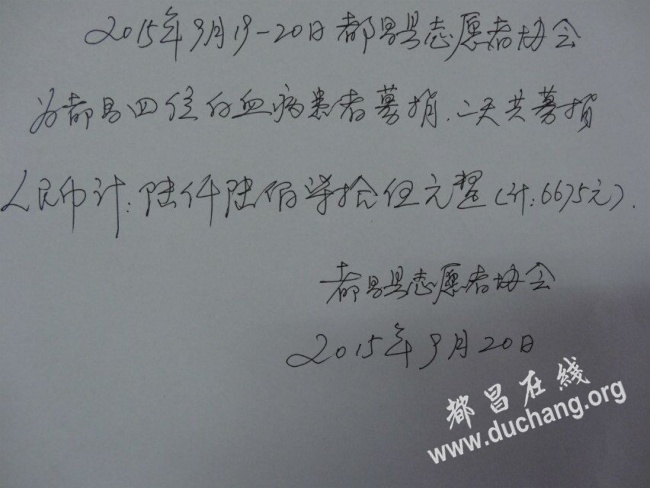 2015年9月19-20日都昌县志愿者协会
为都昌四位白血病患者募捐.二天共募捐
人民币计:陆仟陆佰柒拾伍元整(计:6675元).
都昌县志愿者协会
2015年9月20日
都昌在線
www.duchang.org